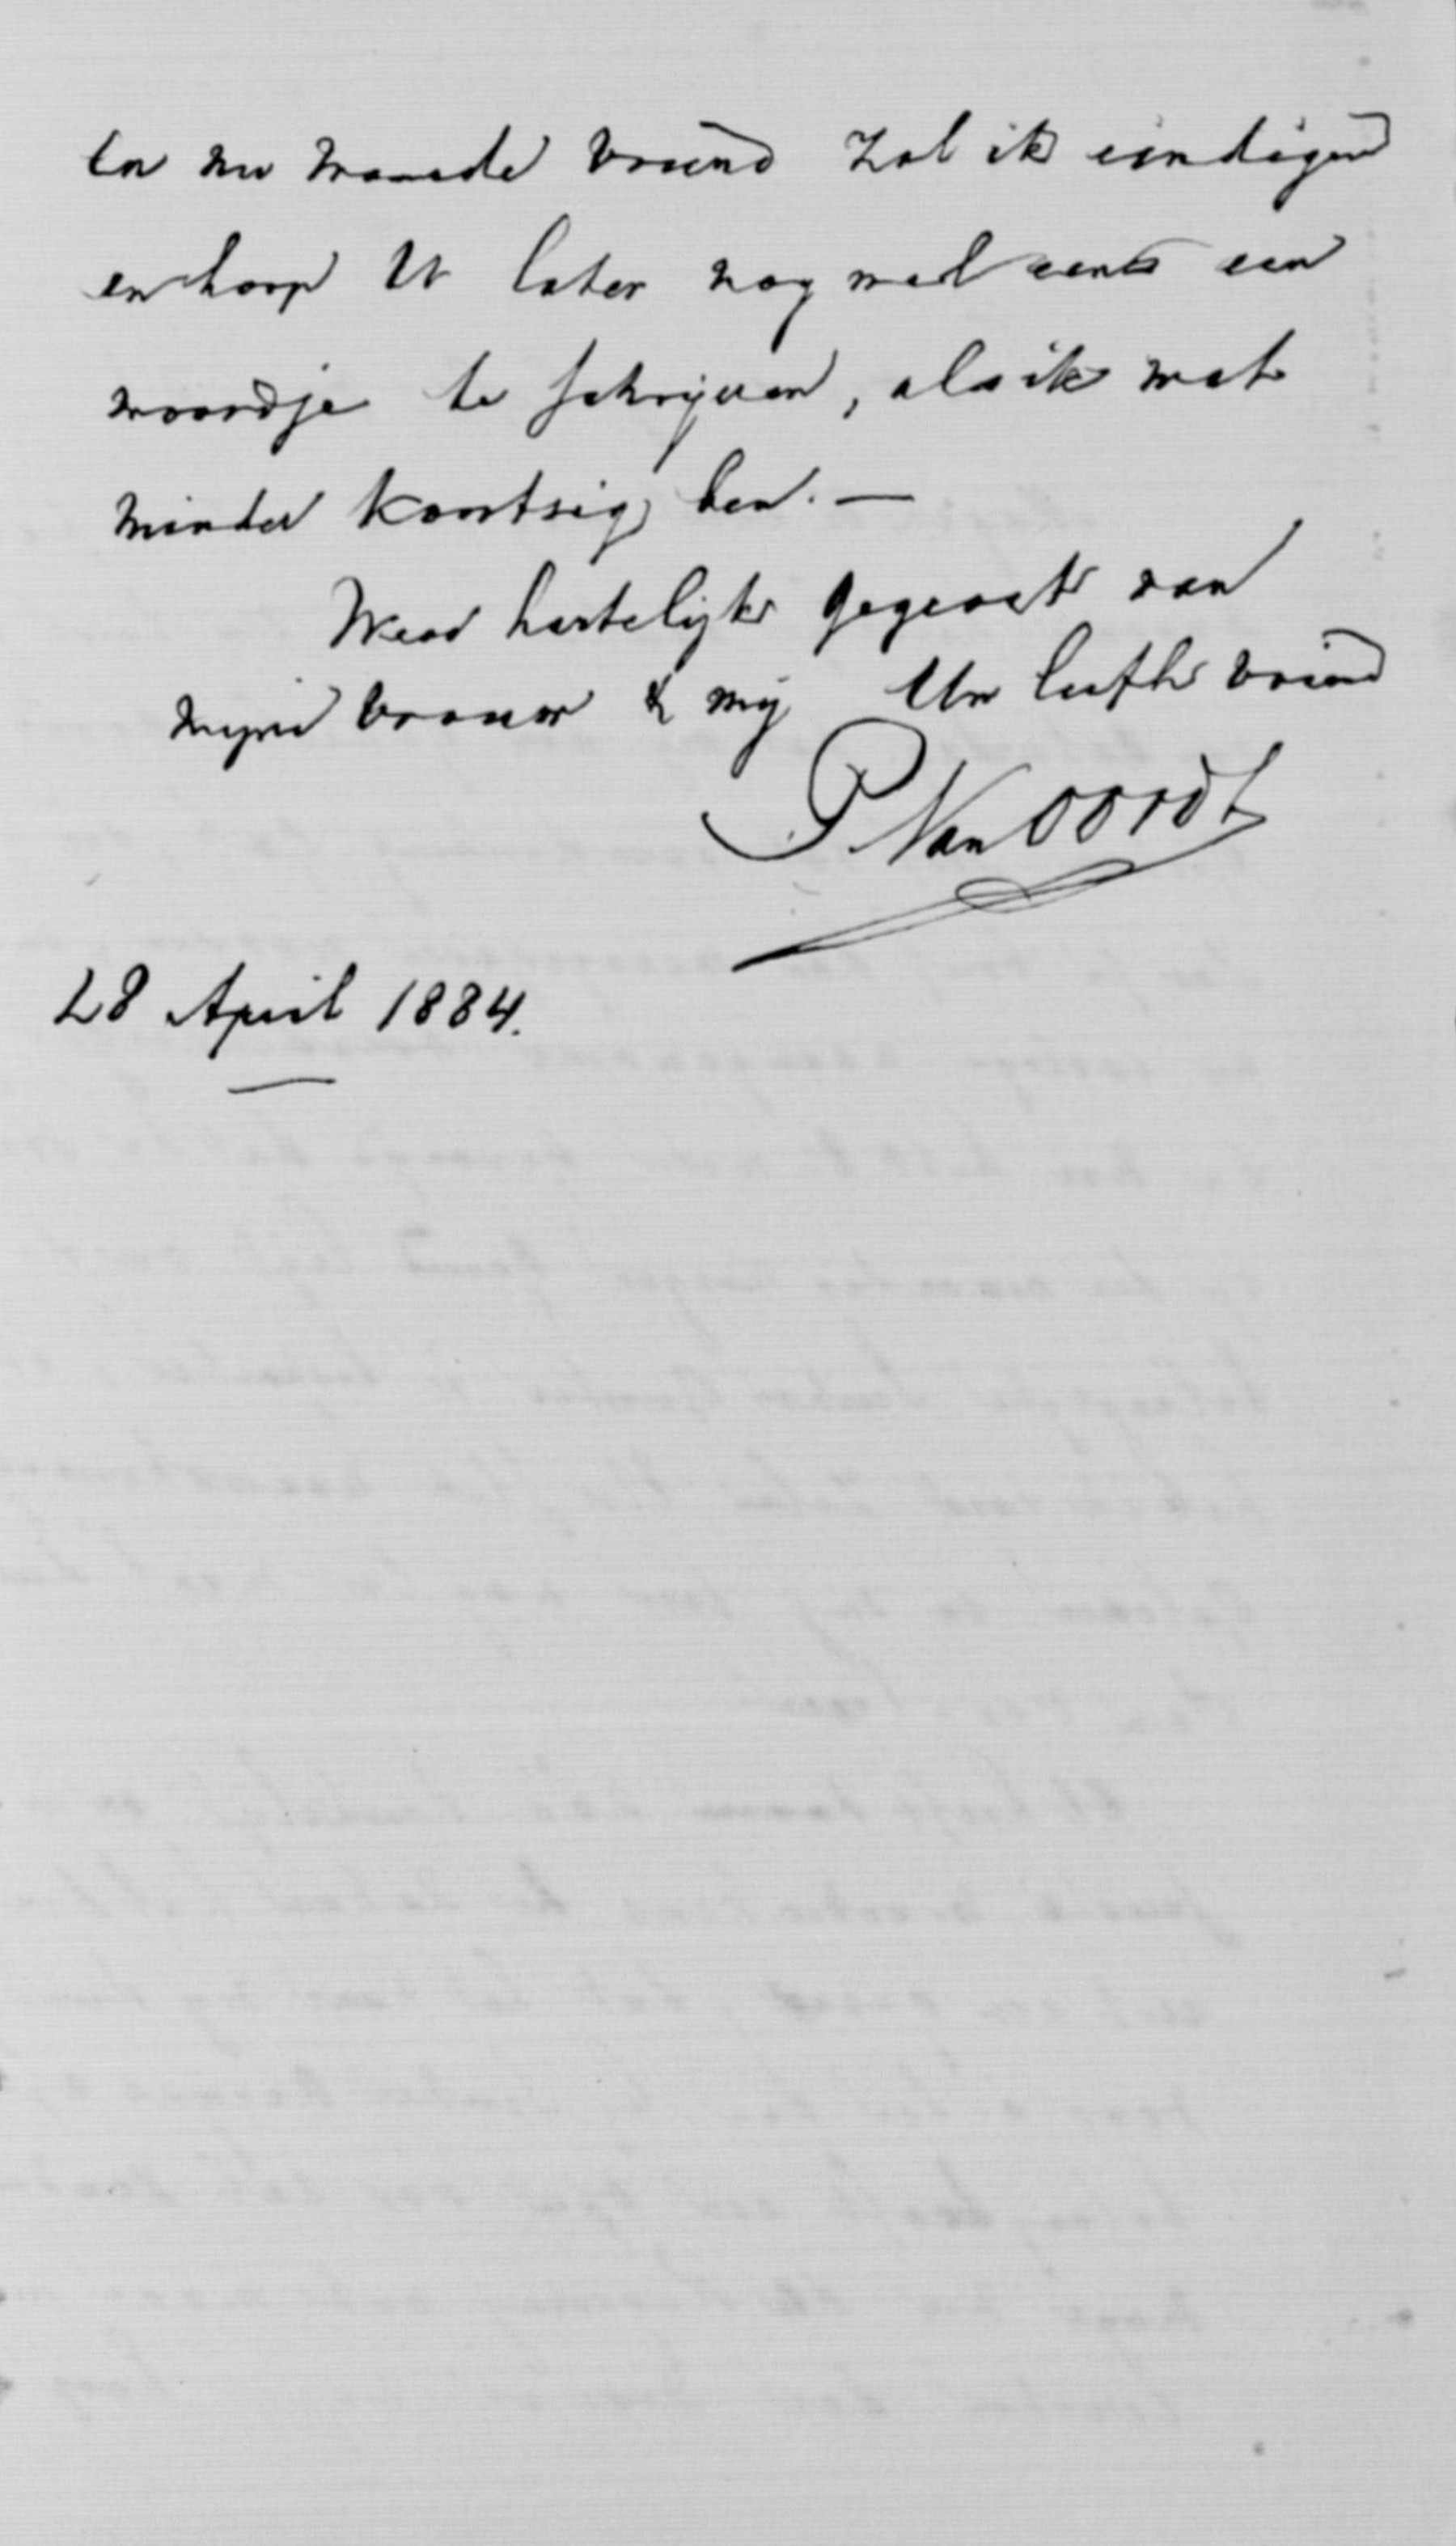 En nu waarde vriend zal ik eindigen
en hoop U later nog wel eens een
woordje te schrijven, als ik wat
minder koortsig ben. —
Weer hartelijk gegroet van
mijn vrouw & mij Uw liefh vriend
P. Van Oordt
28 April 1884.